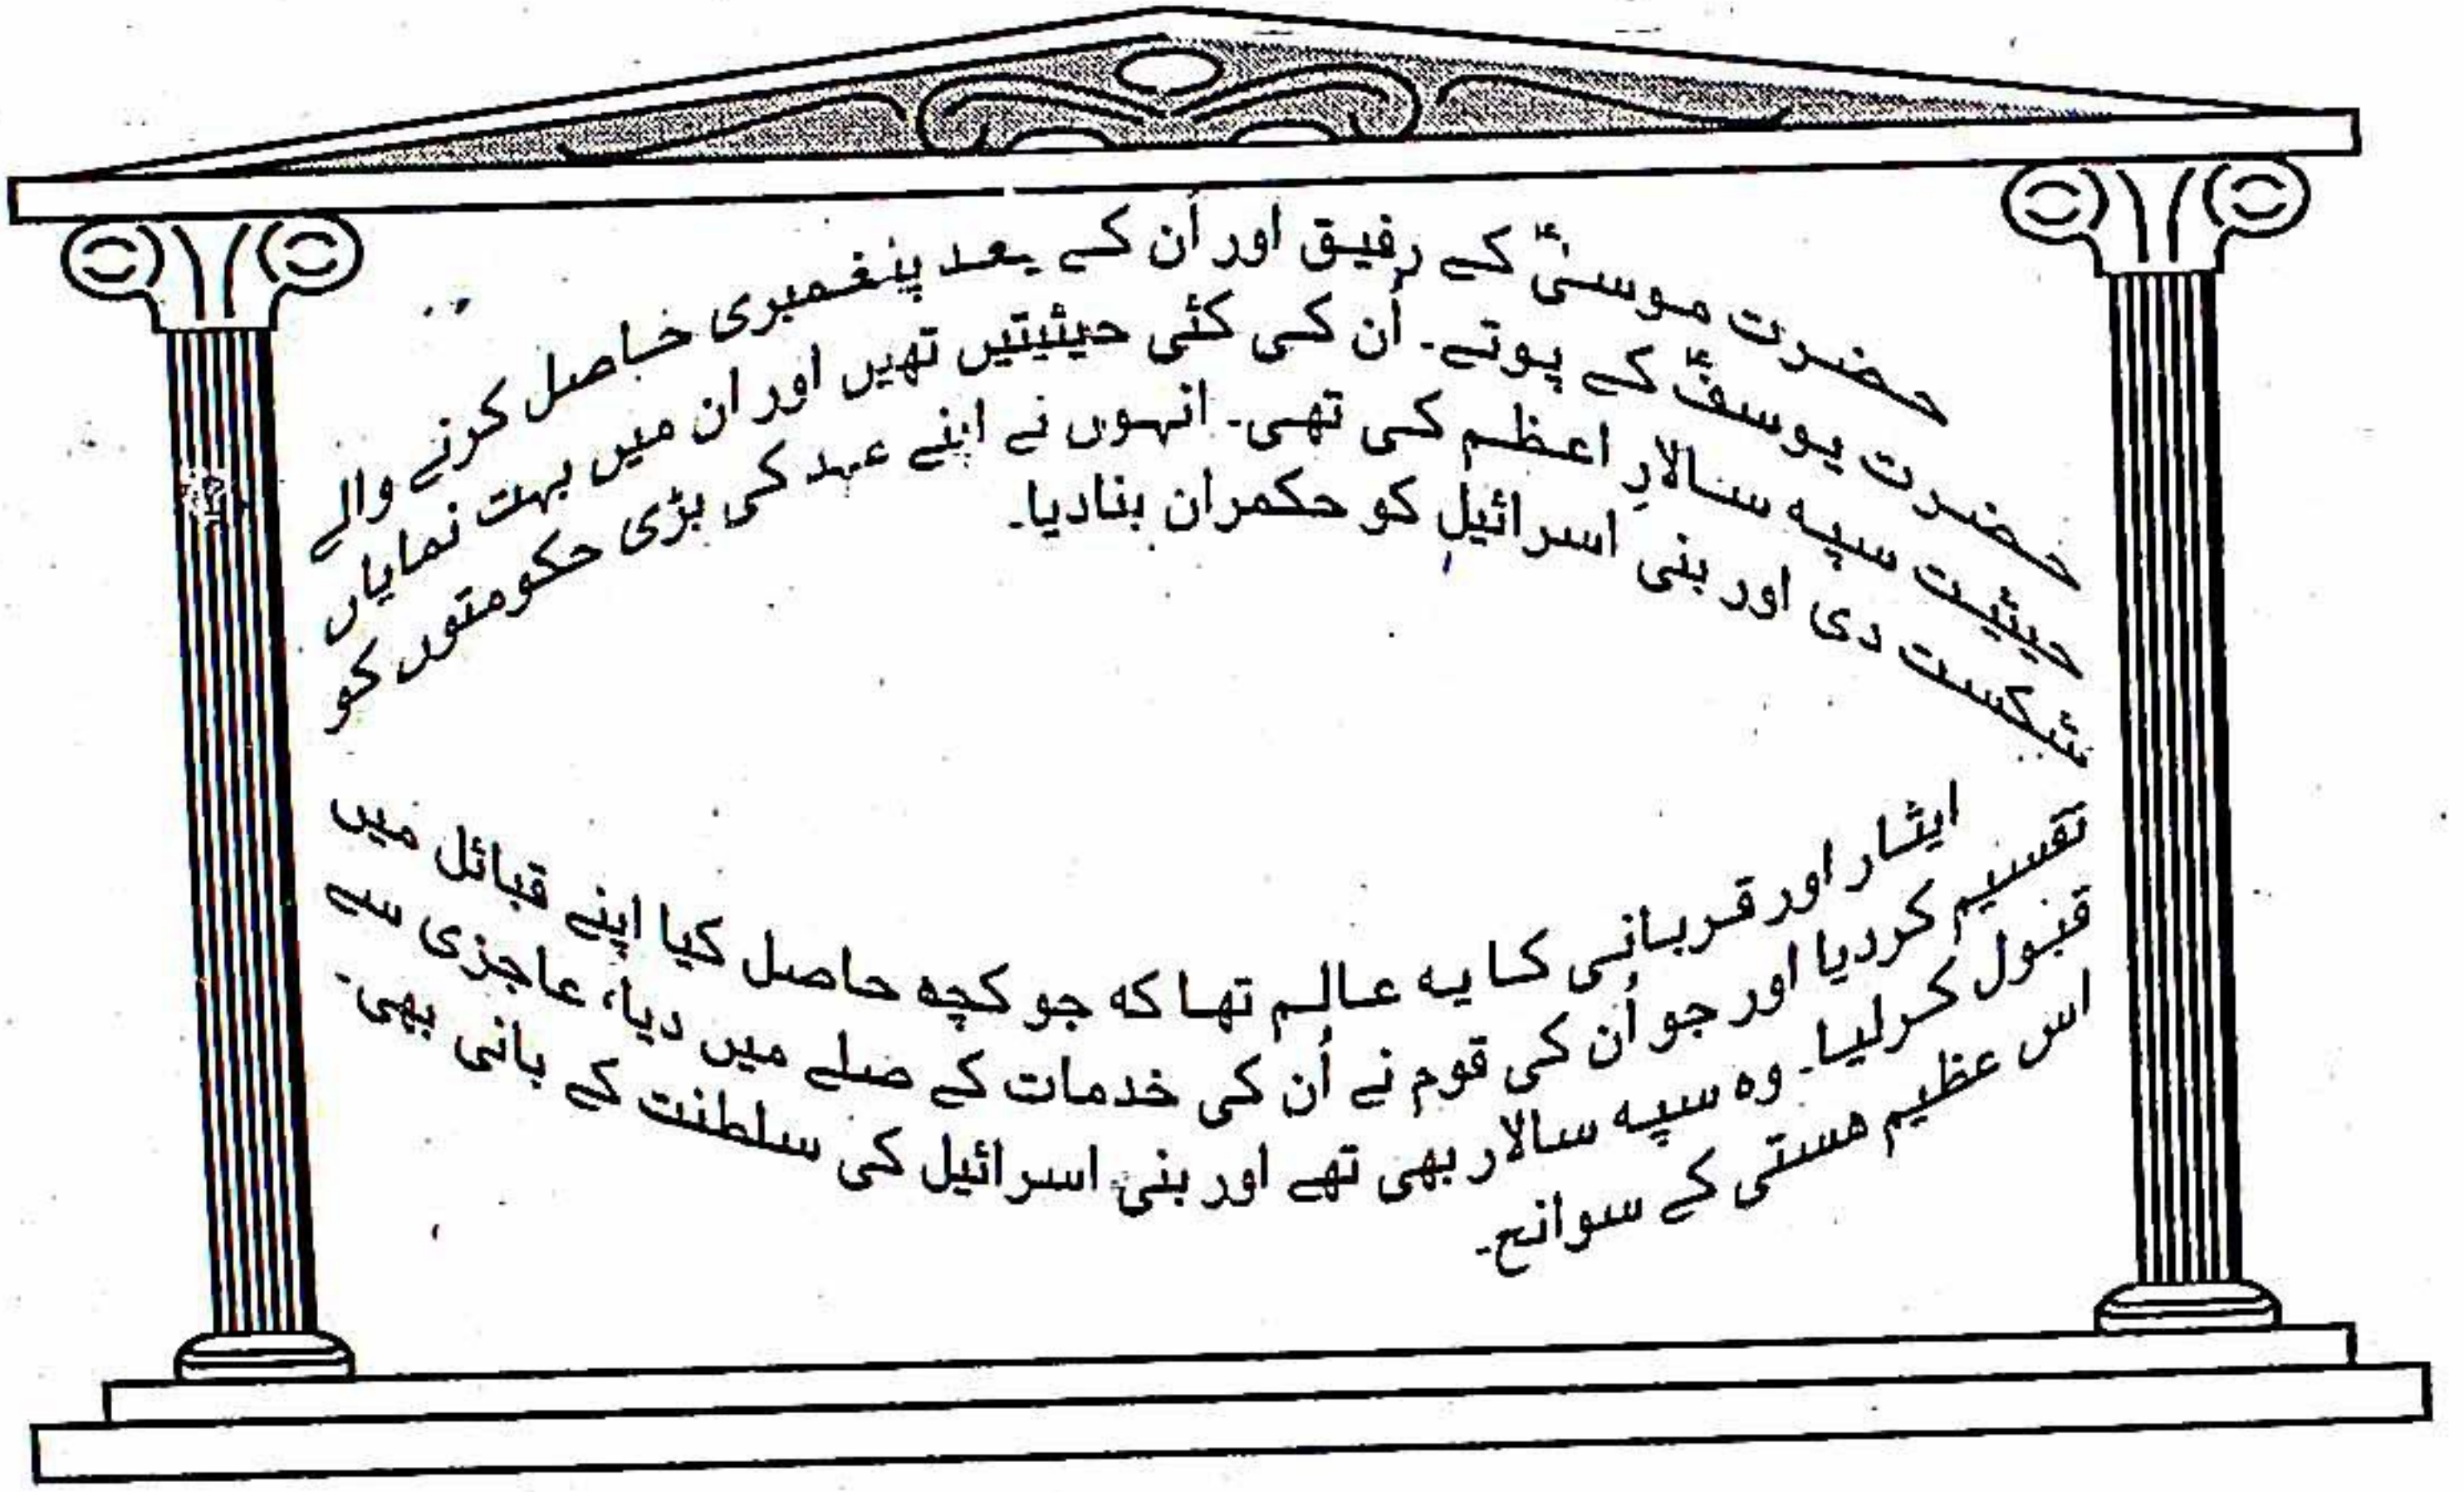 حضرت موسیٰؑ کے رفیق اور اُن کے بعد پنغمبری حاصل کرنے والے
حضرت یوسفؑ کے پوتے۔ اُن کی کئی حیثیتیں تھیں اور ان میں بہت نمایاں
حیثیت سپہ سالارِ اعظم کی تھی۔ انہوں نے اپنے عہد کی بڑی حکومتوں کو
شکست دی اور بنی اسرائیل کو حکمران بنادیا۔
ایثار اور قربانی کا یہ عالم تھا کہ جو کچھ حاصل کیا اپنے قبائل میں
تقسیم کردیا اور جو اُن کی قوم نے اُن کی خدمات کے صلے میں دیا، عاجزی سے
قبول کرلیا۔ وہ سپہ سالار بھی تھے اور بنی اسرائیل کی سلطنت کے بانی بھی۔
اس عظیم ہستی کے سوانح۔